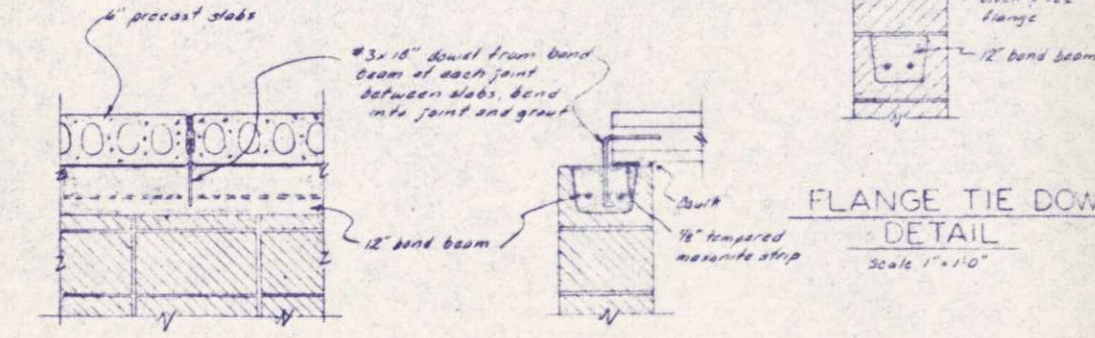 6" precast slabs
#3 x 18" dowel from bond
beam at each joint
between slabs, bend
into joint and grout
12" bond beam
Caulk
1/8" tempered
masonite strip
flange
12" bond beam
FLANGE TIE DOW
DETAIL
Scale 1" = 1'-0"